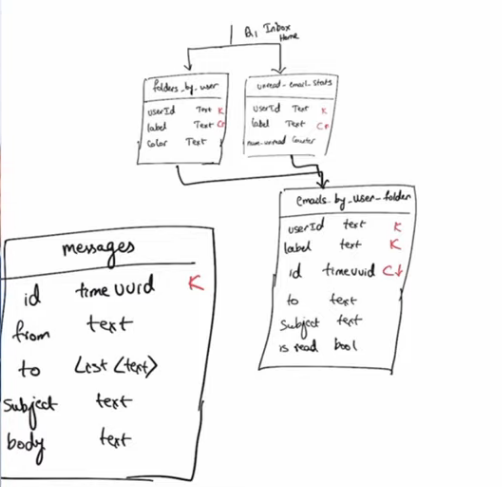 Q1 Inbox
Home
folders_by_user
userId Text K
label Text C↑
Color Text
unread_email_stats
userId Text K
label Text C↑
num_unread Counter
emails_by_user_folder
userId text K
label text K
id timeuuid C↓
to text
subject text
is read bool
messages
id timeuuid K
from text
to List <text>
subject text
body text